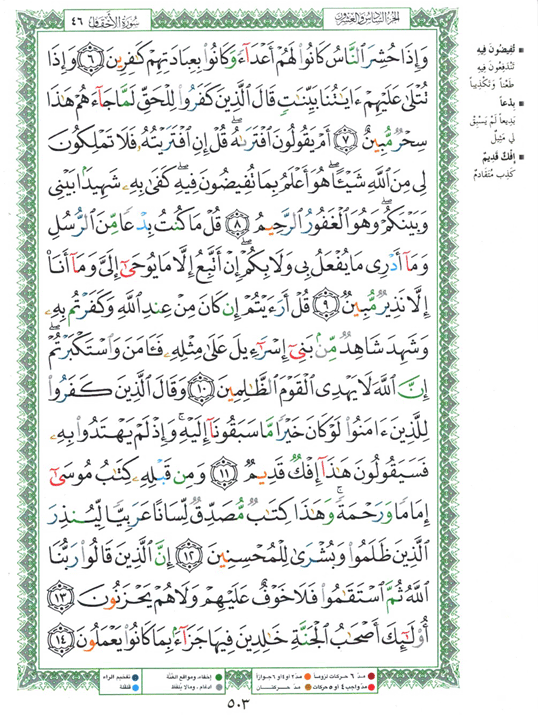 سُورَةُ الأَحْقَافِ ٤٦
الجُزءُ السَّادِسُ وَالعِشْرُون
وَإِذَا حُشِرَ ٱلنَّاسُ كَانُوا۟ لَهُمْ أَعْدَآءً وَكَانُوا۟ بِعِبَادَتِهِمْ كَٰفِرِينَ ٦ وَإِذَا
تُتْلَىٰ عَلَيْهِمْ ءَايَٰتُنَا بَيِّنَٰتٍ قَالَ ٱلَّذِينَ كَفَرُوا۟ لِلْحَقِّ لَمَّا جَآءَهُمْ هَٰذَا
سِحْرٌ مُّبِينٌ ٧ أَمْ يَقُولُونَ ٱفْتَرَىٰهُ ۖ قُلْ إِنِ ٱفْتَرَيْتُهُۥ فَلَا تَمْلِكُونَ
لِى مِنَ ٱللَّهِ شَيْـًٔا ۖ هُوَ أَعْلَمُ بِمَا تُفِيضُونَ فِيهِ ۖ كَفَىٰ بِهِۦ شَهِيدًۢا بَيْنِى
وَبَيْنَكُمْ ۖ وَهُوَ ٱلْغَفُورُ ٱلرَّحِيمُ ٨ قُلْ مَا كُنتُ بِدْعًا مِّنَ ٱلرُّسُلِ
وَمَآ أَدْرِى مَا يُفْعَلُ بِى وَلَا بِكُمْ ۖ إِنْ أَتَّبِعُ إِلَّا مَا يُوحَىٰٓ إِلَىَّ وَمَآ أَنَا۠
إِلَّا نَذِيرٌ مُّبِينٌ ٩ قُلْ أَرَءَيْتُمْ إِن كَانَ مِنْ عِندِ ٱللَّهِ وَكَفَرْتُم بِهِۦ
وَشَهِدَ شَاهِدٌ مِّنۢ بَنِىٓ إِسْرَٰٓءِيلَ عَلَىٰ مِثْلِهِۦ فَـَٔامَنَ وَٱسْتَكْبَرْتُمْ ۖ
إِنَّ ٱللَّهَ لَا يَهْدِى ٱلْقَوْمَ ٱلظَّٰلِمِينَ ١٠ وَقَالَ ٱلَّذِينَ كَفَرُوا۟
لِلَّذِينَ ءَامَنُوا۟ لَوْ كَانَ خَيْرًا مَّا سَبَقُونَآ إِلَيْهِ ۚ وَإِذْ لَمْ يَهْتَدُوا۟ بِهِۦ
فَسَيَقُولُونَ هَٰذَآ إِفْكٌ قَدِيمٌ ١١ وَمِن قَبْلِهِۦ كِتَٰبُ مُوسَىٰٓ
إِمَامًا وَرَحْمَةً ۚ وَهَٰذَا كِتَٰبٌ مُّصَدِّقٌ لِّسَانًا عَرَبِيًّا لِّيُنذِرَ
ٱلَّذِينَ ظَلَمُوا۟ وَبُشْرَىٰ لِلْمُحْسِنِينَ ١٢ إِنَّ ٱلَّذِينَ قَالُوا۟ رَبُّنَا
ٱللَّهُ ثُمَّ ٱسْتَقَٰمُوا۟ فَلَا خَوْفٌ عَلَيْهِمْ وَلَا هُمْ يَحْزَنُونَ ١٣
أُو۟لَٰٓئِكَ أَصْحَٰبُ ٱلْجَنَّةِ خَٰلِدِينَ فِيهَا جَزَآءًۢ بِمَا كَانُوا۟ يَعْمَلُونَ ١٤
تُفِيضُونَ فِيهِ
تَنْدَفِعُونَ فِيهِ
طَعْنًا وَتَكْذِيبًا
بِدْعًا
بَدِيعًا لَمْ يَسْبِقْ
لِي مَثِيلٌ
إِفْكٌ قَدِيمٌ
كَذِبٌ مُتَقَادِمٌ
مدّ ٦ حركات لزوماً
مدّ ٢ أو ٤ أو ٦ جوازاً
مدّ واجب ٤ أو ٥ حركات
مدّ حركتان
إخفاء، ومواقع الغُنَّة
إدغام، ومالا يلفظ
تفخيم الراء
قلقلة
٥٠٣